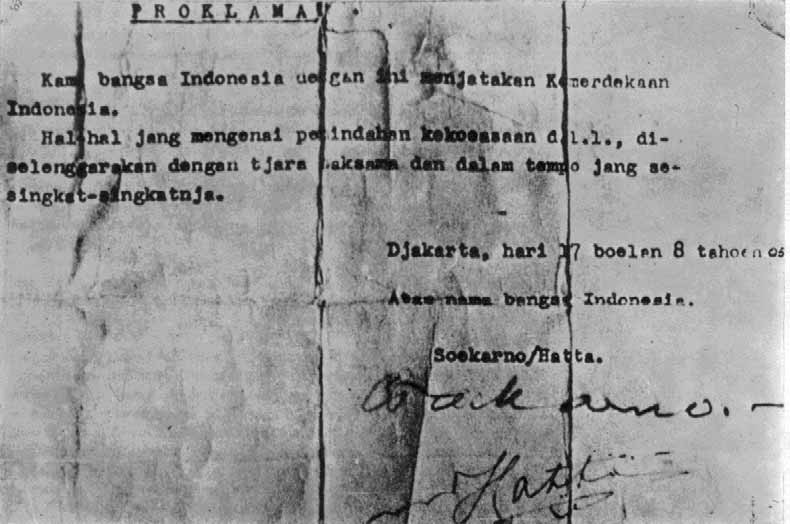 P R O K L A M A S I
Kami bangsa Indonesia dengan ini menjatakan Kemerdekaan
Indonesia.
Hal-hal jang mengenai pemindahan kekoeasaan d.l.l., di-
selenggarakan dengan tjara saksama dan dalam tempo jang se-
singkat-singkatnja.
Djakarta, hari 17 boelan 8 tahoen 05
Atas nama bangsa Indonesia.
Soekarno/Hatta.
Soekarno.
Hatta